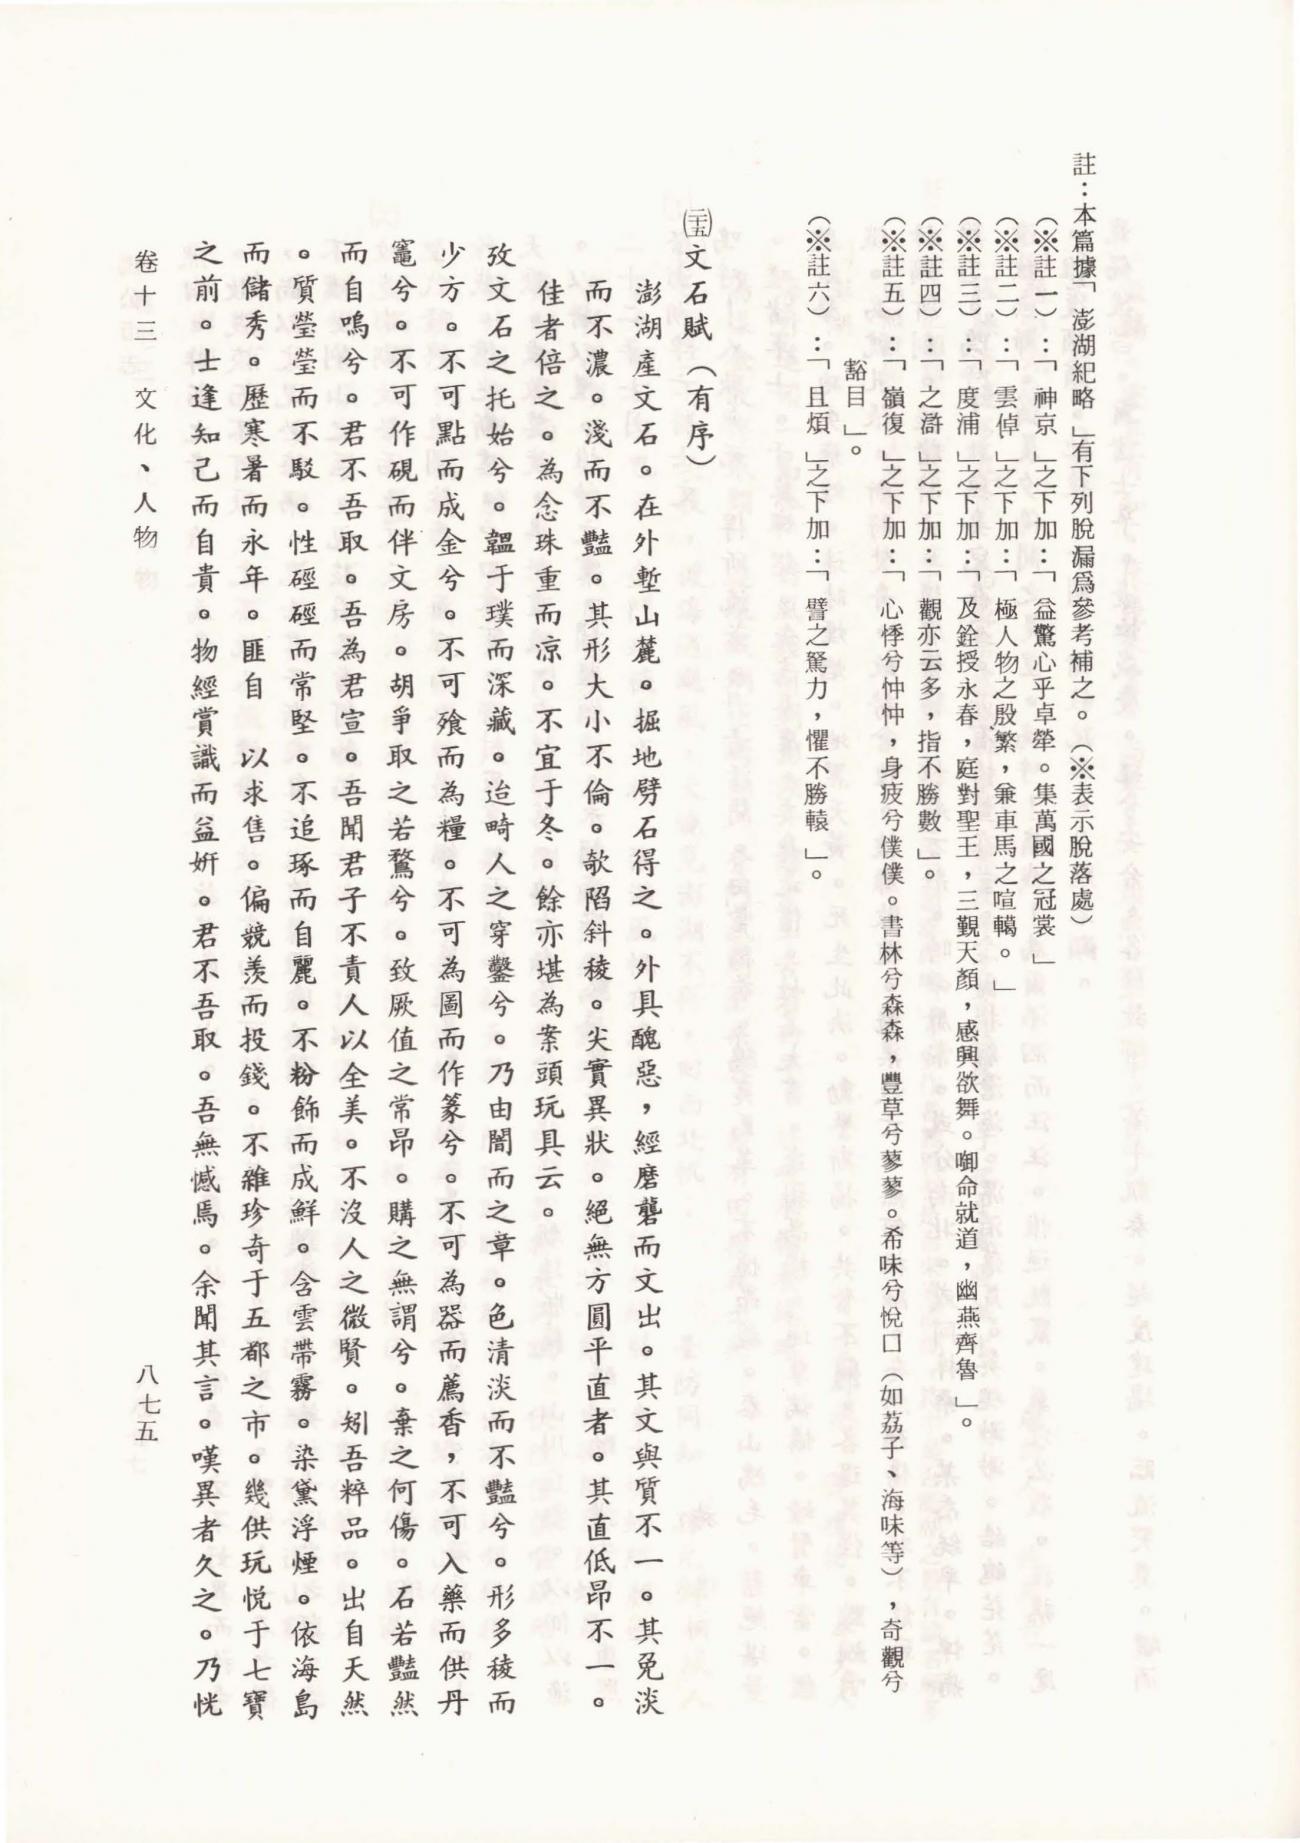 註：本篇據「澎湖紀略」有下列脫漏爲參考補之。（※表示脫落處）
（※註一）：「神京」之下加：「益驚心乎卓犖。集萬國之冠裳」
（※註二）：「雲倬」之下加：「極人物之殷繁，兼車馬之喧轕。」
（※註三）：「度浦」之下加：「及銓授永春，庭對聖王，三覲天顏，感興欲舞。啣命就道，幽燕齊魯」。
（※註四）：「之滸」之下加：「觀亦云多，指不勝數」。
（※註五）：「嶺復」之下加：「心悸兮忡忡，身疲兮僕僕。書林兮森森，豐草兮蓼蓼。希味兮悅口（如荔子、海味等），奇觀兮
豁目」。
（※註六）：「且煩」之下加：「譬之駑力，懼不勝轅」。
㉕文石賦（有序）
澎湖產文石。在外塹山麓。掘地劈石得之。外具醜惡，經磨礱而文出。其文與質不一。其免淡
而不濃。淺而不豔。其形大小不倫。欹陷斜稜。尖實異狀。絕無方圓平直者。其直低昂不一。
佳者倍之。為念珠重而凉。不宜于冬。餘亦堪為案頭玩具云。
攷文石之托始兮。韞于璞而深藏。迨畸人之穿鑿兮。乃由闇而之章。色清淡而不豔兮。形多稜而
少方。不可點而成金兮。不可飱而為糧。不可為圖而作篆兮。不可為器而薦香，不可入藥而供丹
竈兮。不可作硯而伴文房。胡爭取之若鶩兮。致厥值之常昂。購之無謂兮。棄之何傷。石若豔然
而自鳴兮。君不吾取。吾為君宣。吾聞君子不責人以全美。不沒人之微賢。矧吾粹品。出自天然
。質瑩瑩而不駁。性硜硜而常堅。不追琢而自麗。不粉飾而成鮮。含雲帶霧。染黛浮煙。依海島
而儲秀。歷寒暑而永年。匪自　以求售。偏競羨而投錢。不雜珍奇于五都之市。幾供玩悅于七寶
之前。士逢知己而自貴。物經賞識而益妍。君不吾取。吾無憾焉。余聞其言。嘆異者久之。乃恍
卷十三　文化、人物
八七五